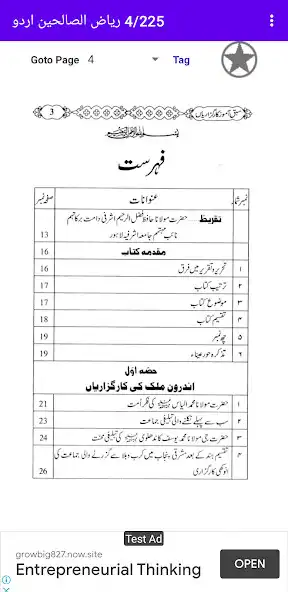 4/225 ریاض الصالحین اردو
Goto Page 4 Tag
سبق آموز کارگزاریاں 3
بسم اللہ الرحمن الرحیم
فہرست
نمبر شمار عنوانات صفحہ نمبر
تقریظ حضرت مولانا حافظ فضل الرحیم اشرفی دامت برکاتہم
نائب مہتمم جامعہ اشرفیہ لاہور 13
مقدمہ کتاب 16
۱ تحریر و تقریر میں فرق 16
۲ ترتیب کتاب 17
۳ موضوع کتاب 17
۴ تقسیم کتاب 18
۵ چھ نمبر 19
۶ تذکرہ حور عیناء 19
حصہ اوّل
اندرون ملک کی کارگزاریاں
۱ حضرت مولانا محمد الیاس کی فکر امت 21
۲ سب سے پہلے نکلنے والی تبلیغی جماعت 23
۳ حضرت جی مولانا محمد یوسف کاندھلوی کی تبلیغی محنت 24
۴ تقسیم ہند کے بعد مشرقی پنجاب میں کرب و بلا سے گزرنے والی جماعت کی
انوکھی کارگزاری 26
Test Ad
growbig827.now.site
Entrepreneurial Thinking
OPEN